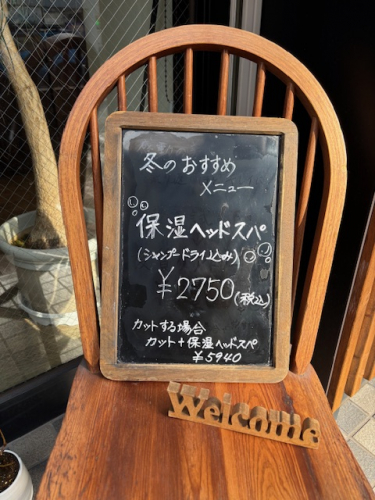 冬のおすすめ
メニュー
保湿ヘッドスパ
(シャンプードライ込み)
¥2750(税込)
カットする場合
カット+保湿ヘッドスパ
¥5940
Welcome